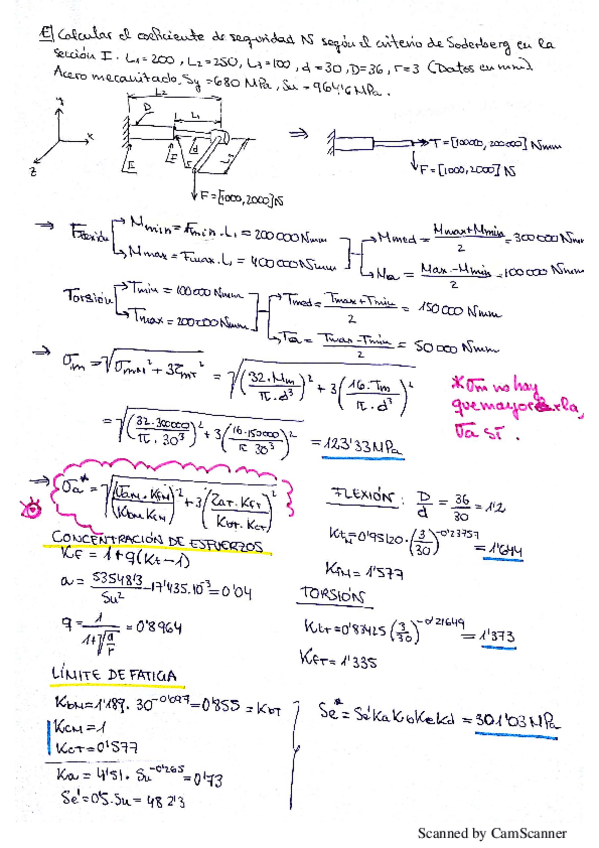 E) Calcular el coeficiente de seguridad N según el criterio de Soderberg en la
sección I. L1=200, L2=250, L3=100, d=30, D=36, r=3 (Datos en mm).
Acero mecanizado, Sy=680 MPa, Su=964'6 MPa.
L2
y
D
L1
x
z
d
I
F=[1000,2000] N
⇒
T=[100000, 200000] Nmm
F=[1000,2000] N
⇒ Flexión
Mmin = Fmin·L1 = 200000 Nmm
Mmax = Fmax·L1 = 400000 Nmm
Mmed = (Mmax+Mmin)/2 = 300000 Nmm
Ma = (Max-Mmin)/2 = 100000 Nmm
Torsión
Tmin = 100000 Nmm
Tmax = 200000 Nmm
Tmed = (Tmax+Tmin)/2 = 150000 Nmm
Ta = (Tmax-Tmin)/2 = 50000 Nmm
⇒ σm = √(σmM² + 3τmT²) = √((32·Mm/π·d³)² + 3(16·Tm/π·d³)²)
= √((32·300000/π·30³)² + 3(16·150000/π 30³)²) = 123'33 MPa
*σm no hay
que mayorarla,
σa sí.
⇒ σa* = √((σaM·KfM/KbM·KcM)² + 3(τaT·KfT/KbT·KcT)²)
CONCENTRACIÓN DE ESFUERZOS
Kf = 1+q(Kt-1)
a = 5354813/Su² - 17'435·10⁻³ = 0'04
q = 1/(1+√(a/r)) = 0'8964
FLEXIÓN: D/d = 36/30 = 1'2
KtM = 0'95120·(3/30)^-0'23757 = 1'644
KfM = 1'577
TORSIÓN
KtT = 0'83425(3/30)^-0'21649 = 1'373
KfT = 1'335
LÍMITE DE FATIGA
KbM = 1'189·30^-0'097 = 0'855 = KbT
KcM = 1
KcT = 0'577
Ka = 4'51·Su^-0'265 = 0'73
Se' = 0'5·Su = 482'3
Se* = Se' Ka Kb Ke Kd = 301'03 MPa
Scanned by CamScanner